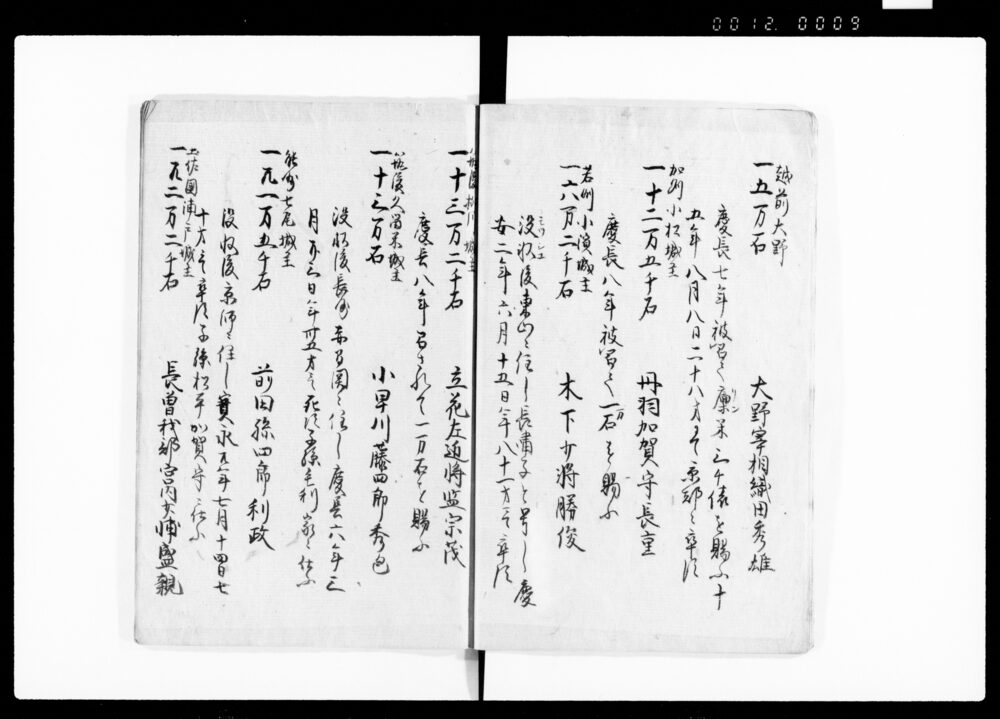 0012.0009
越前大野
一五万石 大野宰相織田秀雄
慶長七年被召て廩米三千俵を賜ふ十
五年八月八日二十八才にて京都ニ卒す
加州小松城主
一十二万五千石 丹羽加賀守長重
慶長八年被召て一万石を賜ふ
若州小濱城主
一六万二千石 木下少将勝俊
没収後東山ニ住し長嘯子と号し慶
安二年六月十五日年八十一才ニて卒す
筑後柳川城主
一十三万二千石 立花左近将監宗茂
慶長八年召されて一万石を賜ふ
筑後久留米城主
一十三万石 小早川藤四郎秀包
没収後長州赤間関ニ住し慶長六年三
月廿三日年卅五才ニて死す子孫毛利家ニ仕ふ
能州七尾城主
一廿一万五千石 前田孫四郎利政
没収後京師ニ住し寛永十年七月十四日七
十才ニて卒す子孫松平加賀守ニ仕ふ
土佐國浦戸城主
一廿二万二千石 長曽我部宮内少輔盛親